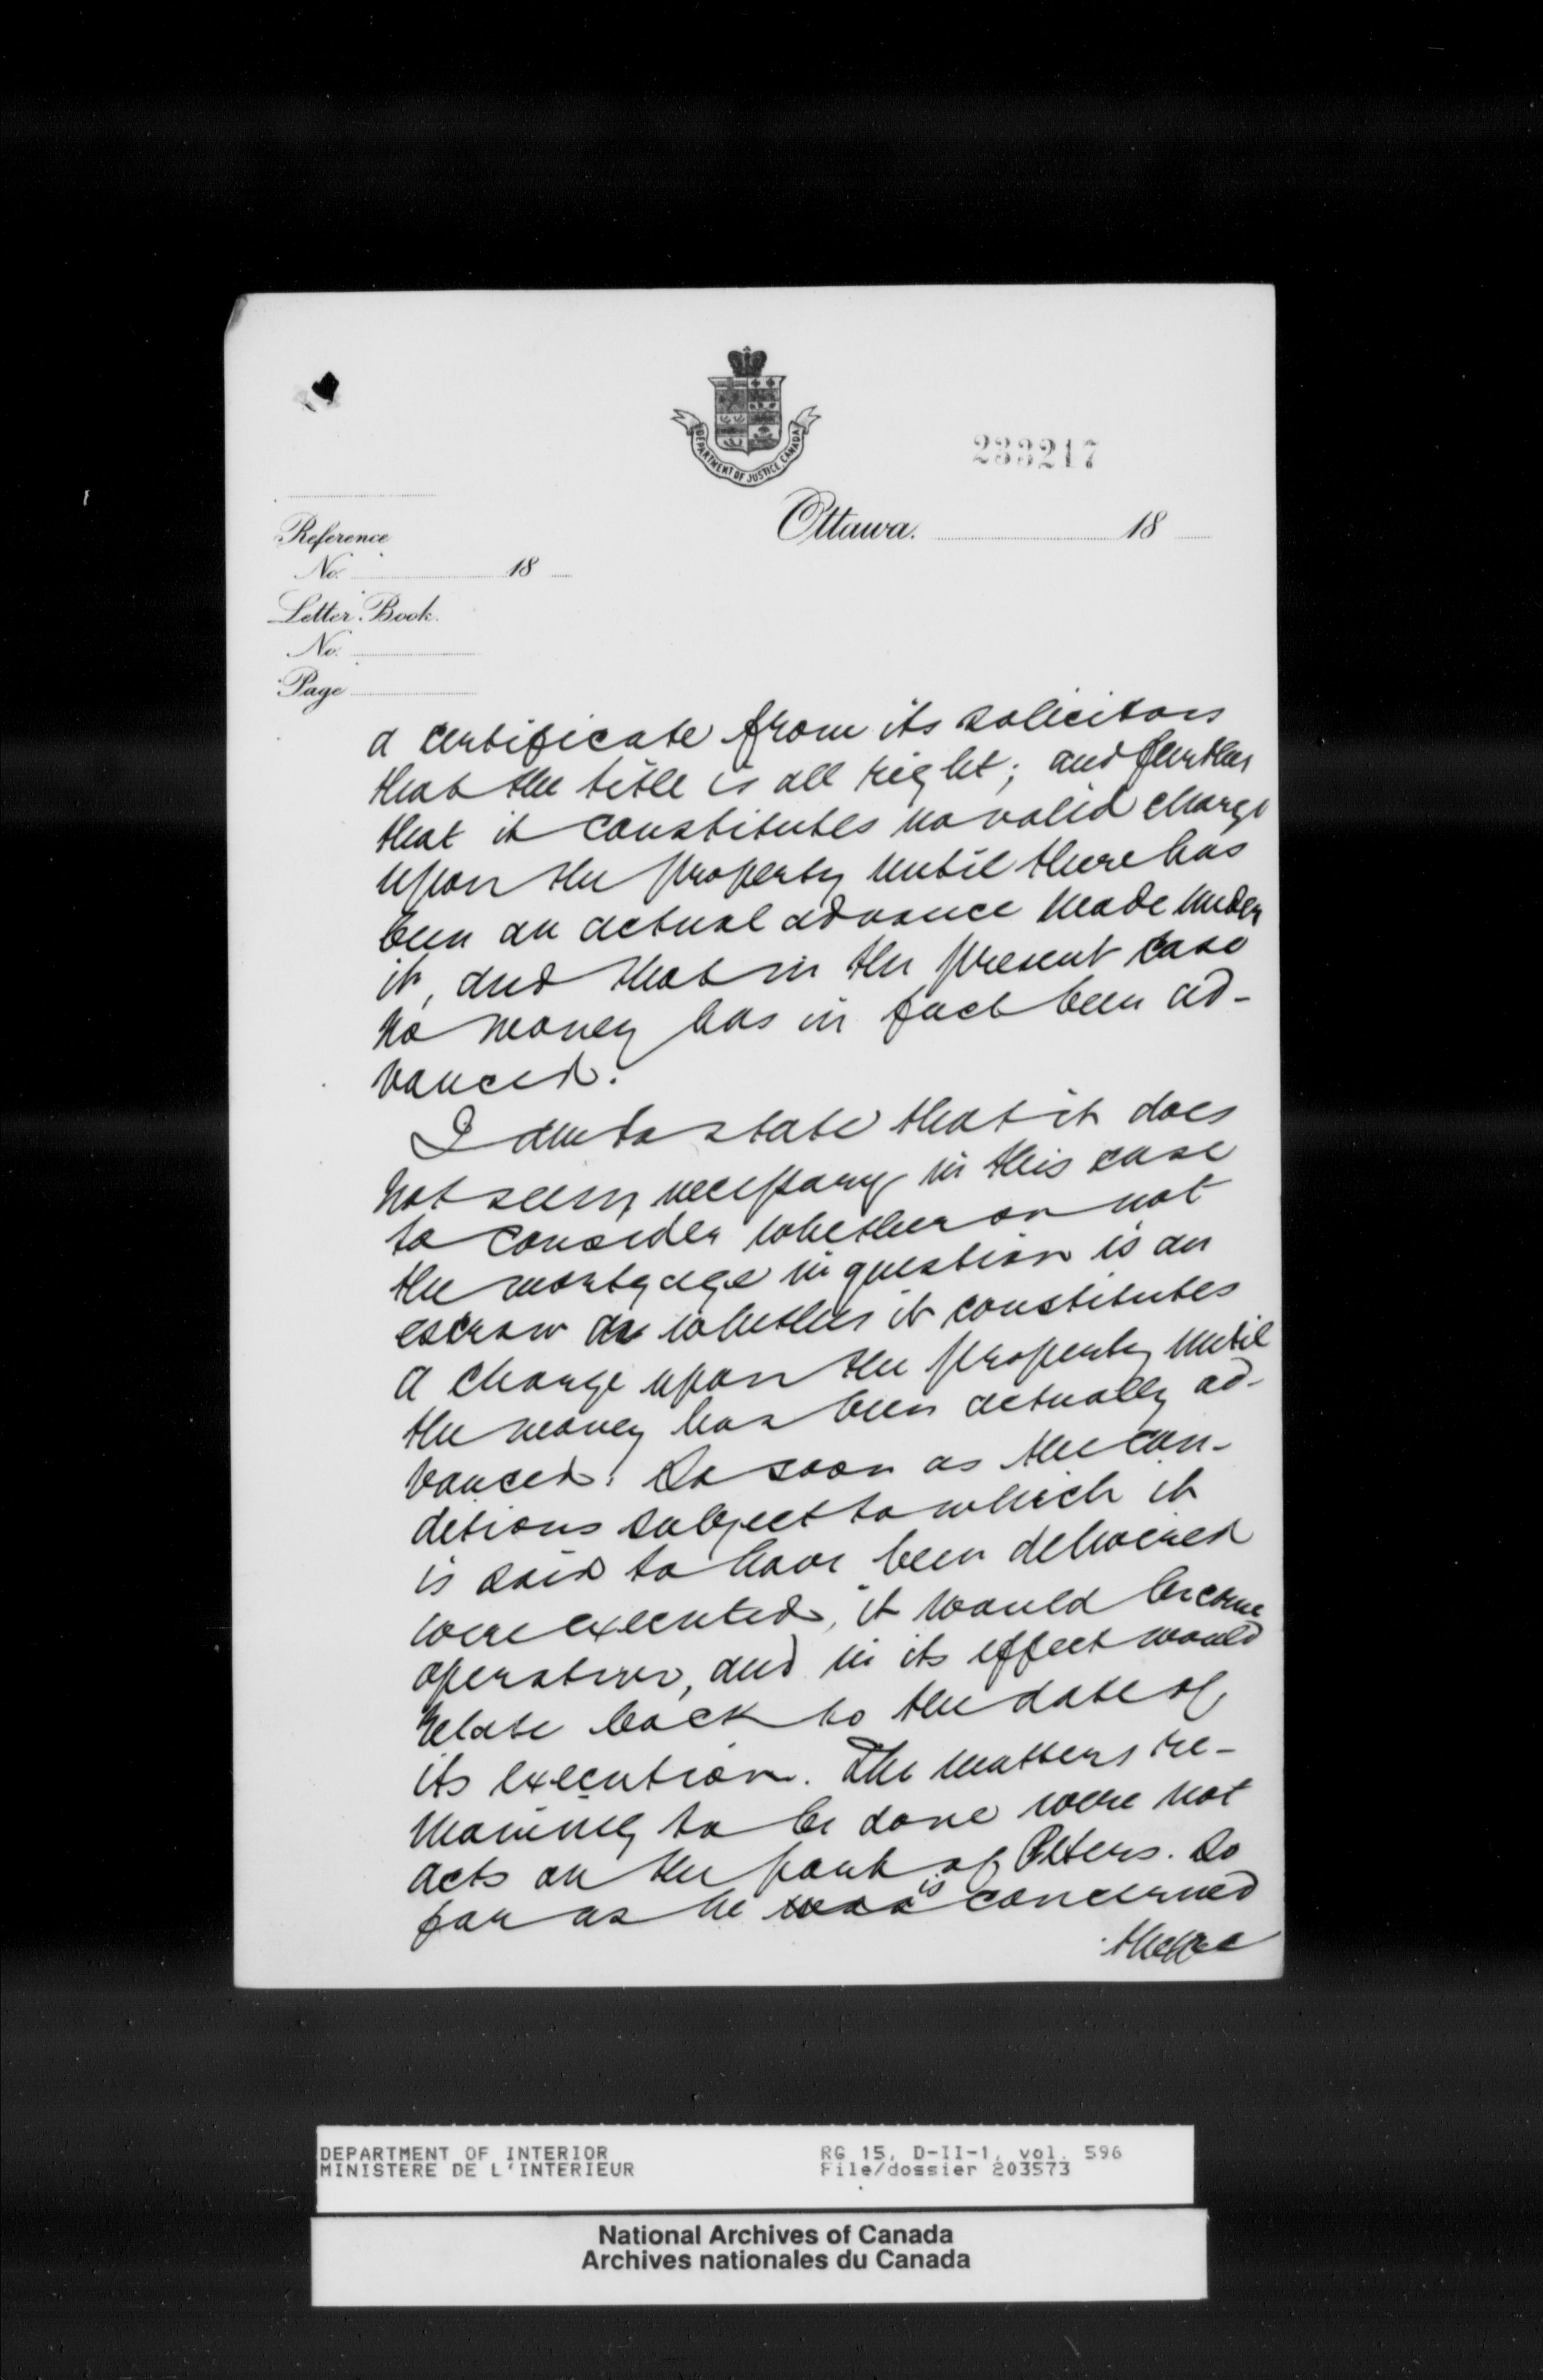 DEPARTMENT OF JUSTICE CANADA
233217
Ottawa. 18
Reference
No. 18
Letter Book.
No.
Page
a certificate from its solicitors
that the title is all right; and further
that it constitutes no valid charge
upon the property until there has
been an actual advance made under
it, and that in the present case
no money has in fact been ad-
vanced.
I am to state that it does
not seem necessary in this case
to consider whether or not
the mortgage in question is an
escrow or whether it constitutes
a charge upon the property until
the money has been actually ad-
vanced. So soon as the con-
ditions subject to which it
is said to have been delivered
were executed, it would become
operative, and in its effect would
relate back to the date of
its execution. The matters re-
maining to be done were not
acts on the part of Peters. So
far as he was is concerned
DEPARTMENT OF INTERIOR
MINISTERE DE L'INTERIEUR
RG 15, D-II-1, vol. 596
File/dossier 203573
National Archives of Canada
Archives nationales du Canada